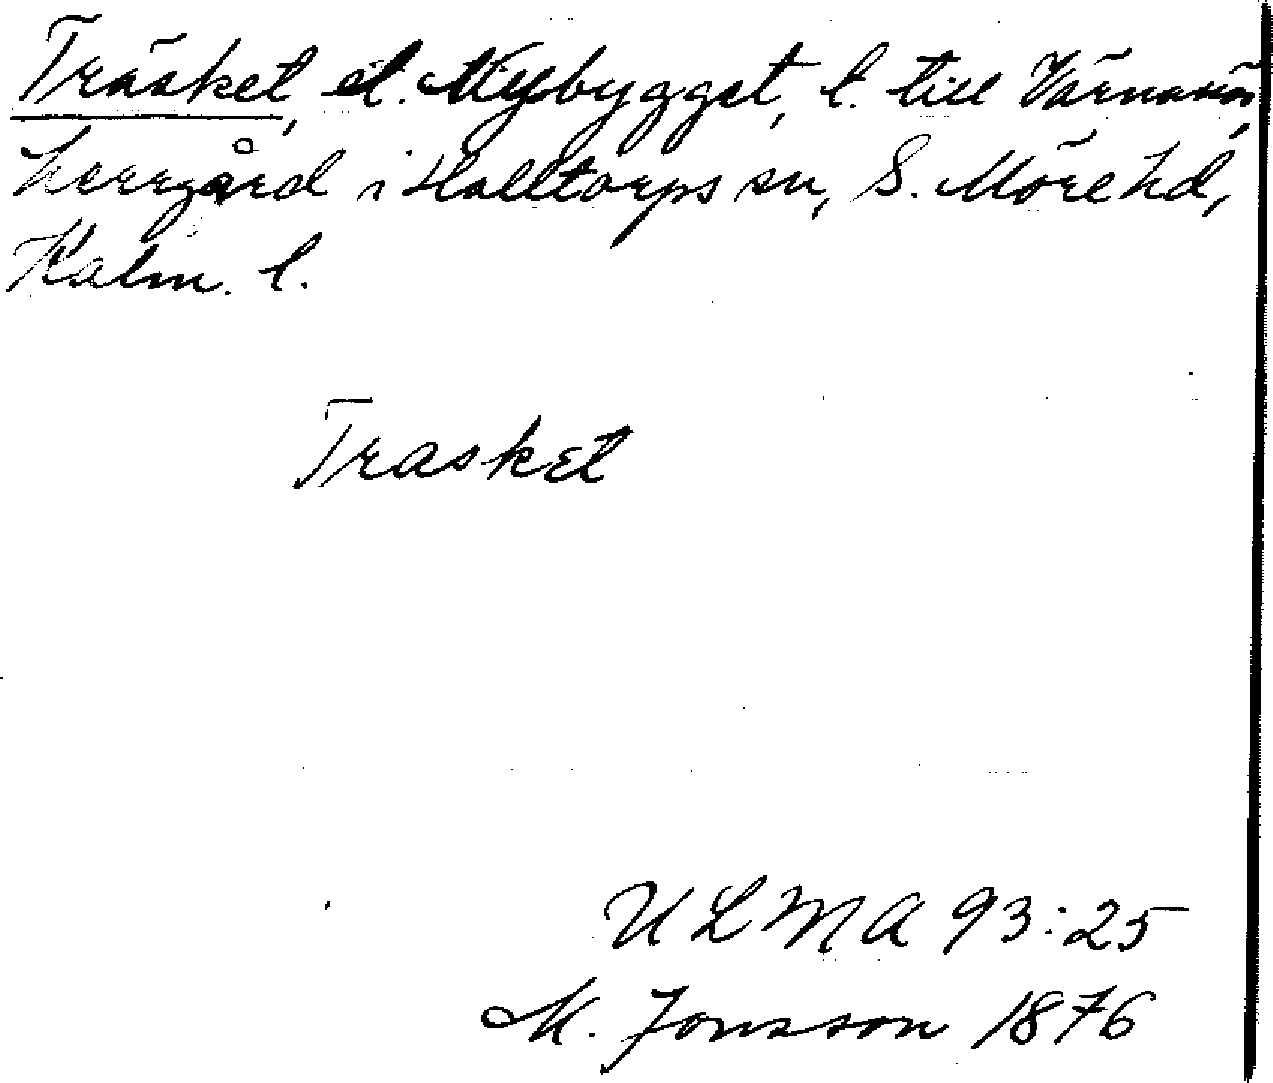 Träsket, el. Nybygget, l. till Värnanäs,
herrgård i Halltorps sn, S. Möre hd,
Kalm. l.
Trasket
ULMA 93:25
M. Jonsson 1876